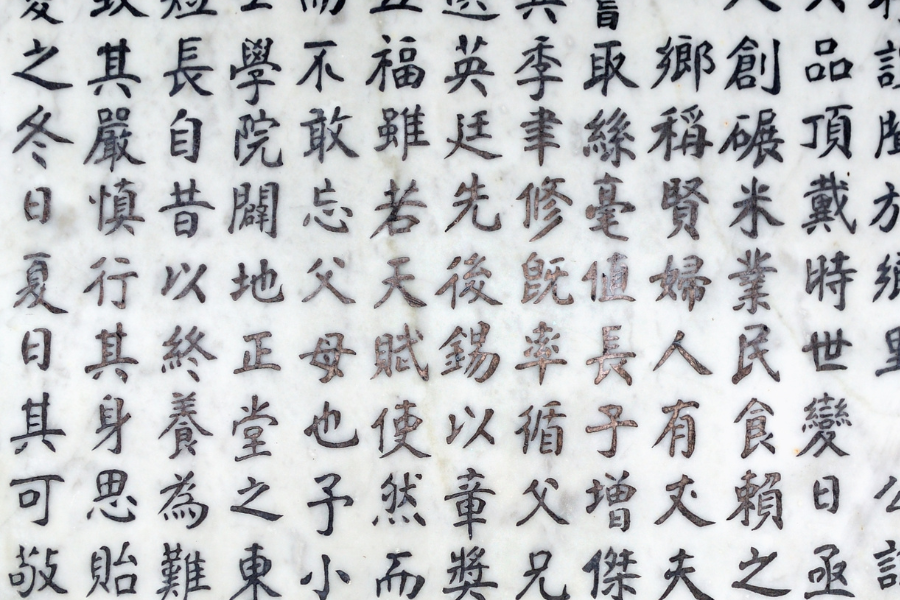 方鄉里 公
品頂戴時世變日亟
創碾米業民食賴之
鄉稱賢婦人有丈夫
取絲毫值長子增傑
季聿修既率循父兄
英廷先後錫以章獎
五福雖若天賦使然而
而不敢忘父母也予小
學院闢地正堂之東
長自昔以終養為難
致其嚴慎行其身思貽
之冬日夏日其可敬